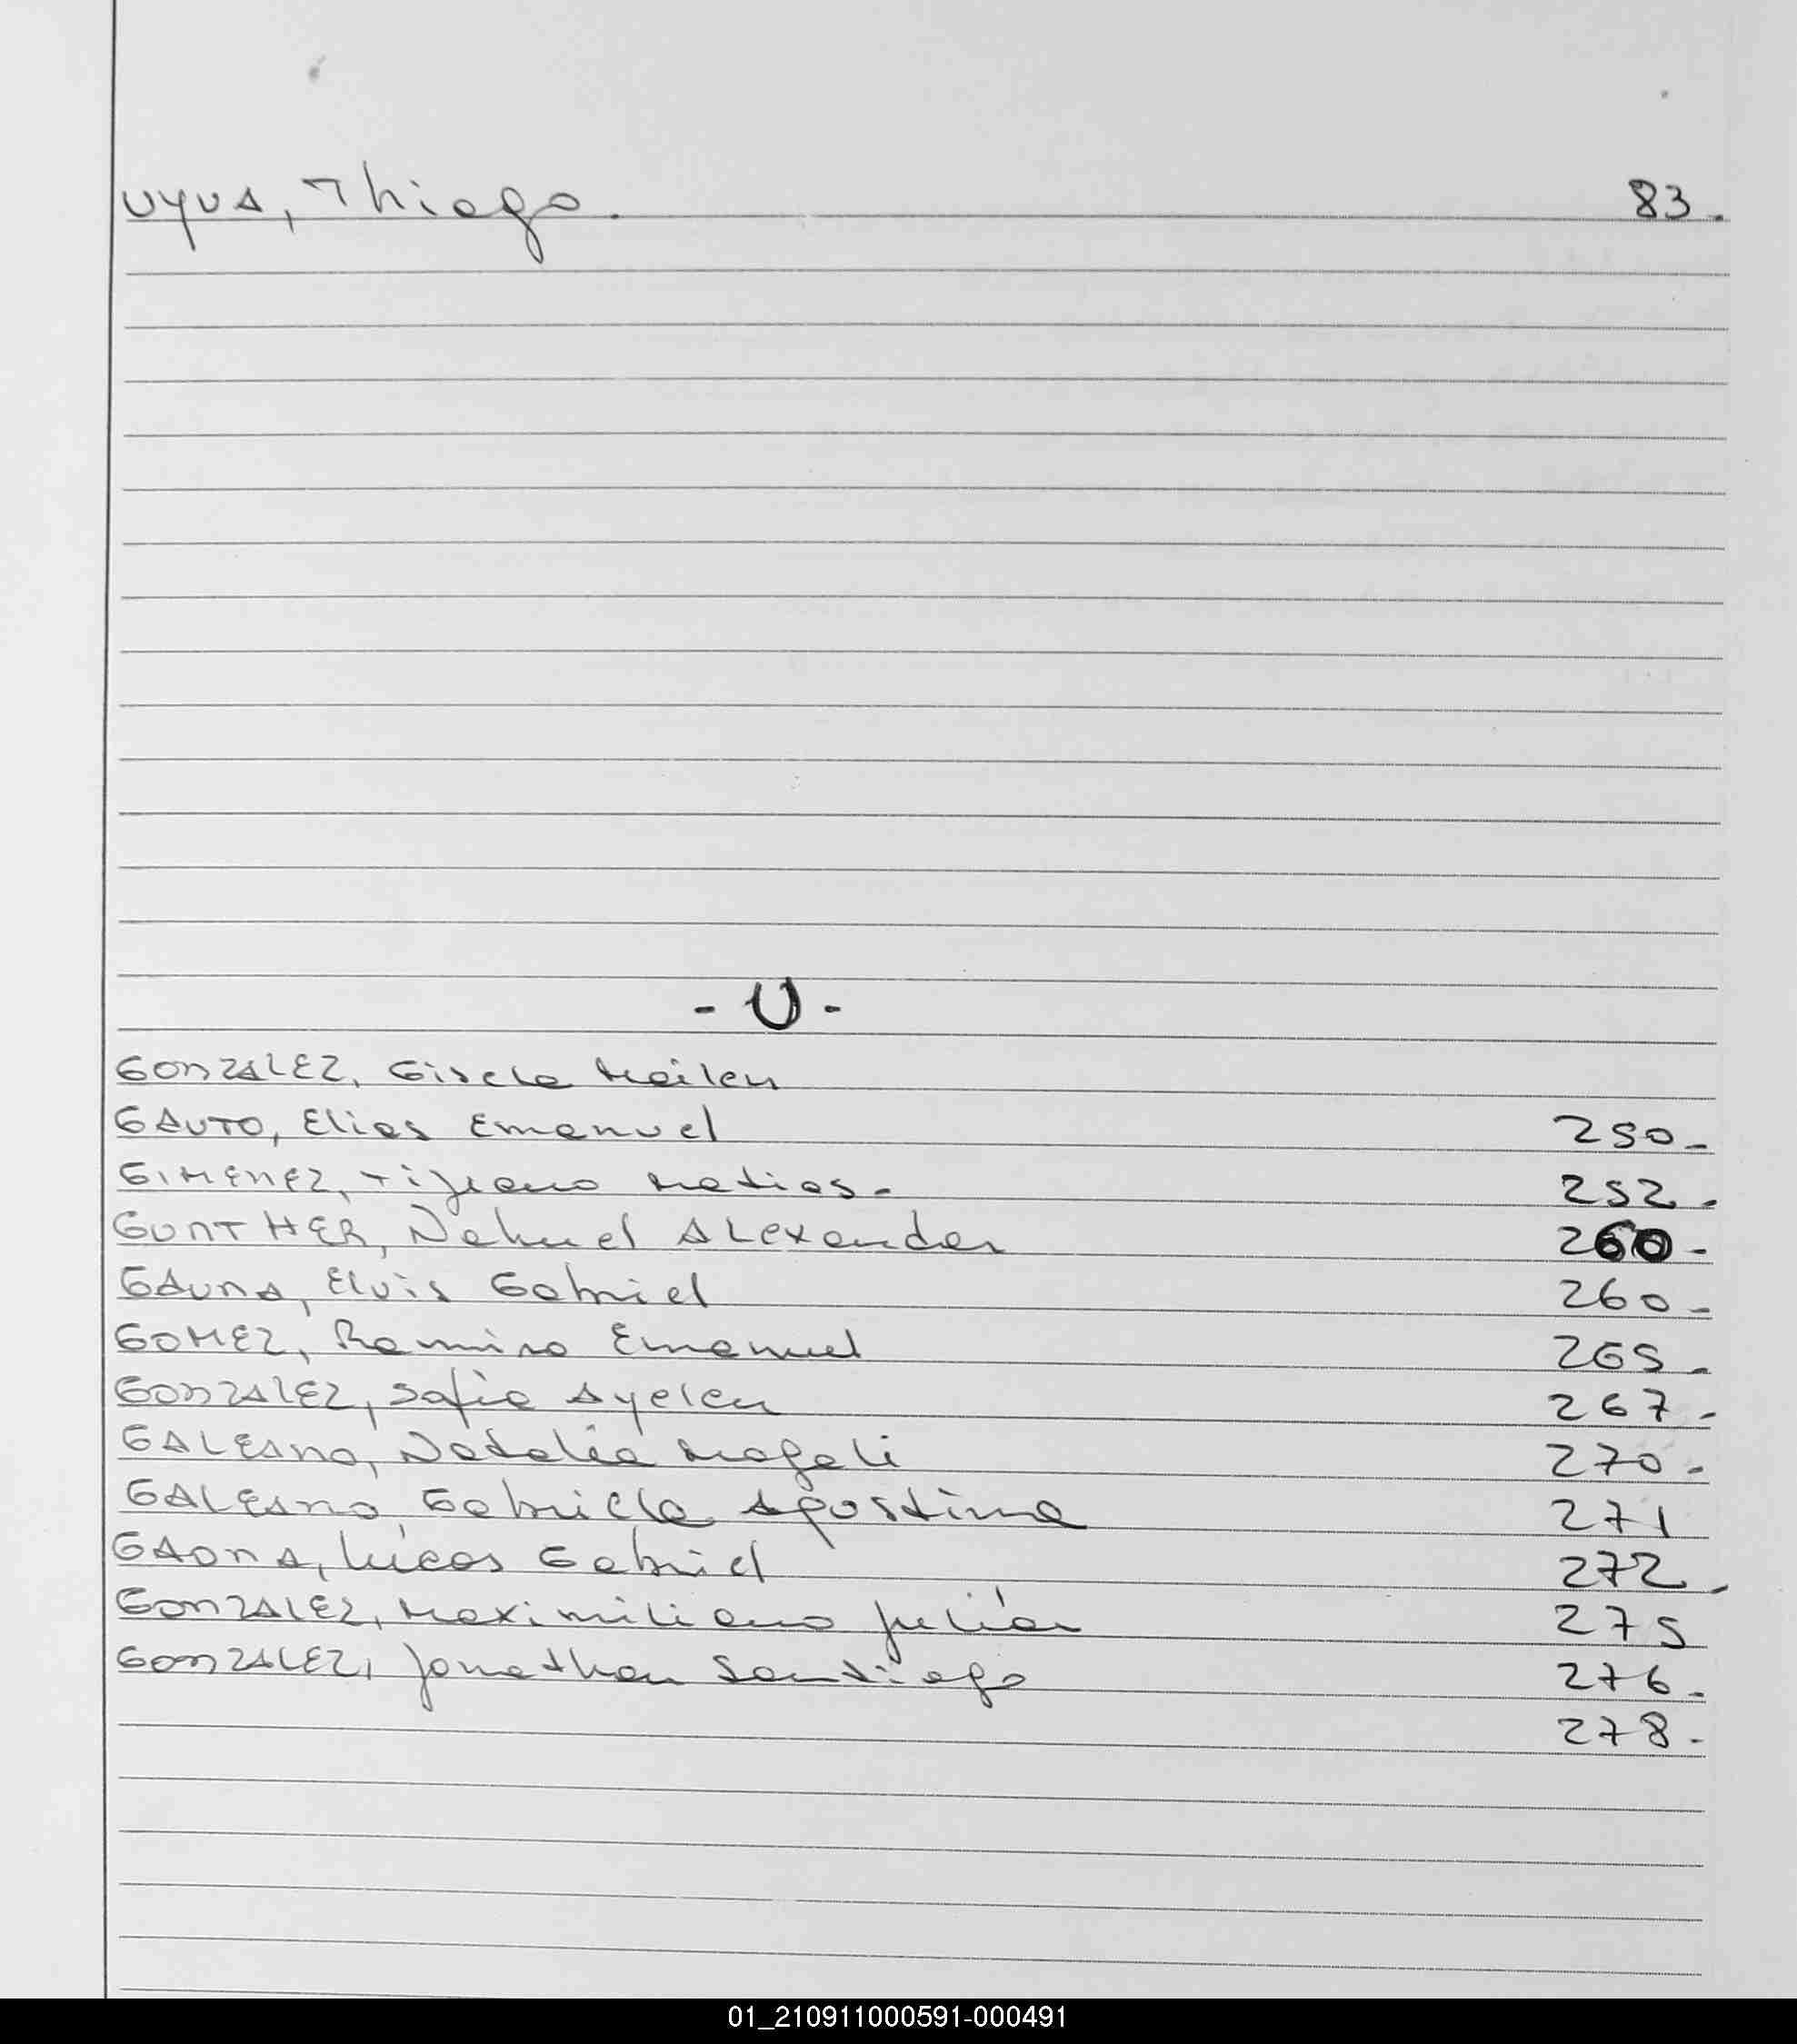 UYUA, Thiago. 83.
- U -
GONZALEZ, Gisela Mailen
GAUTO, Elias Emanuel 250-
GIMENEZ, Tiziano Matias- 252.
GUNTHER, Nahuel Alexander 260-
GAUNA, Elvis Gabriel 260-
GOMEZ, Ramiro Emanuel 265-
GONZALEZ, Sofia Ayelen 267-
GALEANO, Natalia Magali 270-
GALEANO, Gabriela Agostina 271
GAONA, Lucas Gabriel 272.
GONZALEZ, Maximiliano Julián 275
GONZALEZ, Jonathan Santiago 276.
278-
01_210911000591-000491